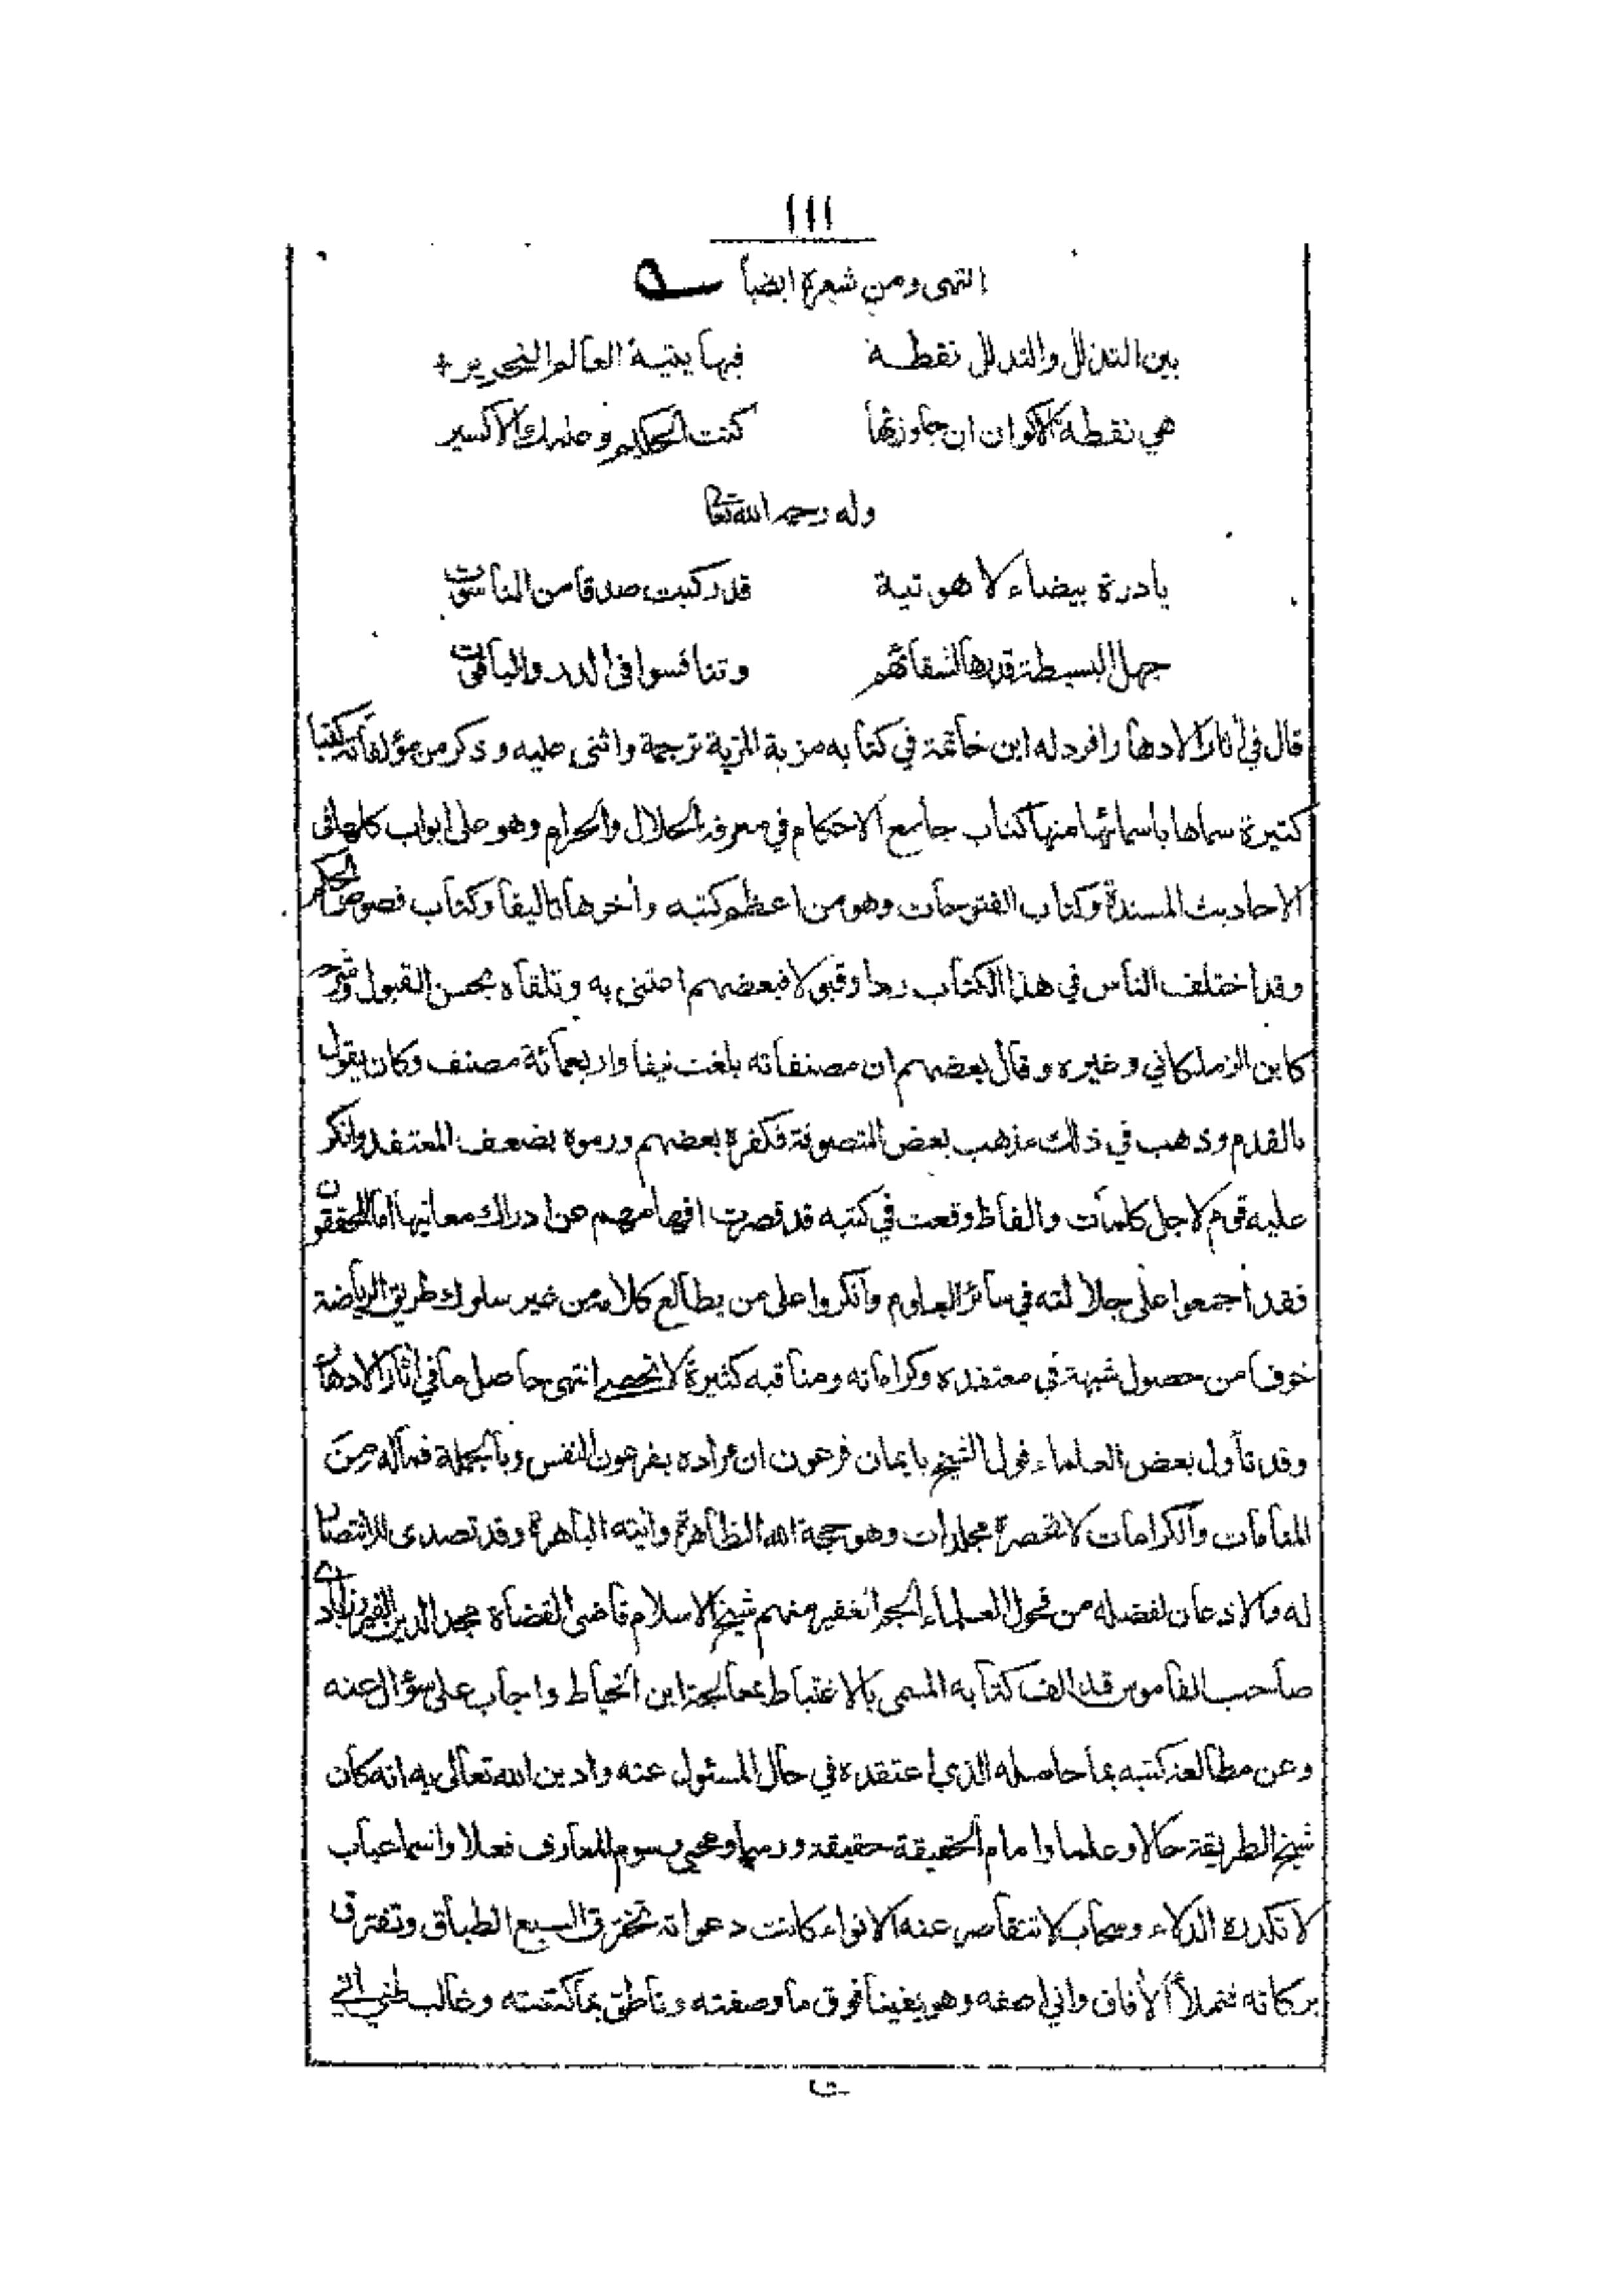 ١١١
انتهى ومن شعره ايضا
بين التذلل والتدلل نقطة فيها يتيه العالم النحرير
هي نقطة الاكوان ان جاوزتها كنت الحكيم وعلمك الاكسير
وله رحمه الله تعا
يا درة بيضاء لاهوتية قد ركبت صدفا من الناسوت
جهل البسيطة قدرها لشقائهم وتنافسوا فى الدر والياقوت
قال في آثار الادهار افرد له ابن خاتمة في كتابه مزية المزية ترجمة واثنى عليه وذكر من مؤلفاته كتبا
كثيرة سماها باسمائها منها كتاب جامع الاحكام في معرفة الحلال والحرام وهو على ابواب كلها فى
الاحاديث المسندة وكتاب الفتوحات وهو من اعظم كتبه وآخرها تاليفا وكتاب فصوص الحكم
وقد اختلف الناس في هذا الكتاب ردا وقبولا فبعضهم اعتنى به وتلقاه بحسن القبول وشرحه
كابن الزملكاني وغيره وقال بعضهم ان مصنفاته بلغت نيفا واربعمائة مصنف وكان يقول
بالقدم وذهب في ذلك مذهب بعض المتصوفة فكفره بعضهم ورموه بضعف المعتقد وانكر
عليه قوم لاجل كلمات والفاظ وقعت في كتبه قد قصرت افهامهم عن ادراك معانيها اما المحققون
فقد اجمعوا على جلالته في سائر العلوم وانكروا على من يطالع كلامه من غير سلوك طريق الرياضة
خوفا من حصول شبهة في معتقده وكراماته ومناقبه كثيرة لا تنحصر انتهى حاصل ما في آثار الادهار
وقد تأول بعض العلماء قول الشيخ بايمان فرعون ان مراده بفرعون النفس وبالجملة فما له من
المقامات والكرامات لا تحصره مجلدات وهو حجة الله الظاهرة وآيته الباهرة وقد تصدى للانتصار
له والاذعان لفضله من فحول العلماء الجم الغفير منهم شيخ الاسلام قاضى القضاة مجد الدين الفيروزابادي
صاحب القاموس قد الف كتابه المسمى بالاغتباط بمعالجة ابن الخياط واجاب على سؤال عنه
وعن مطالعة كتبه بما حاصله الذي اعتقده في حال المسئول عنه وادين الله تعالى به انه كان
شيخ الطريقة حالا وعلما وامام الحقيقة حقيقة ورسما ومحيي رسوم المعارف فعلا واسما عباب
لا تكدره الدلاء وسحاب لا تتقاصر عنه الانواء كانت دعواته تخترق السبع الطباق وتفترق
بركاته فتملأ الآفاق واني اصفه وهو يقينا فوق ما وصفته وناطق بما كتبته وغالب ظني اني